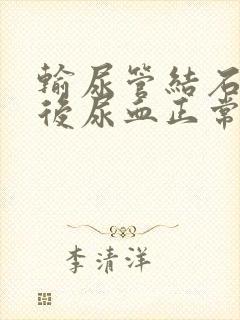 輸尿管結石
後尿血正常
李清洋